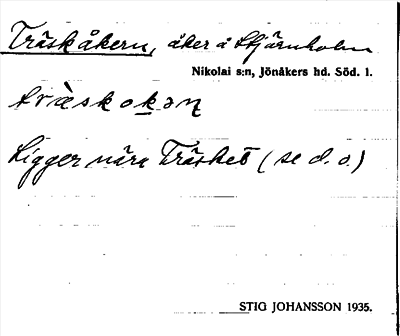 Träskåkern, åker å Stjärnholm
Nikolai s:n, Jönåkers hd. Söd. l.
Ligger nära Träsket (se d. o.)
STIG JOHANSSON 1935.